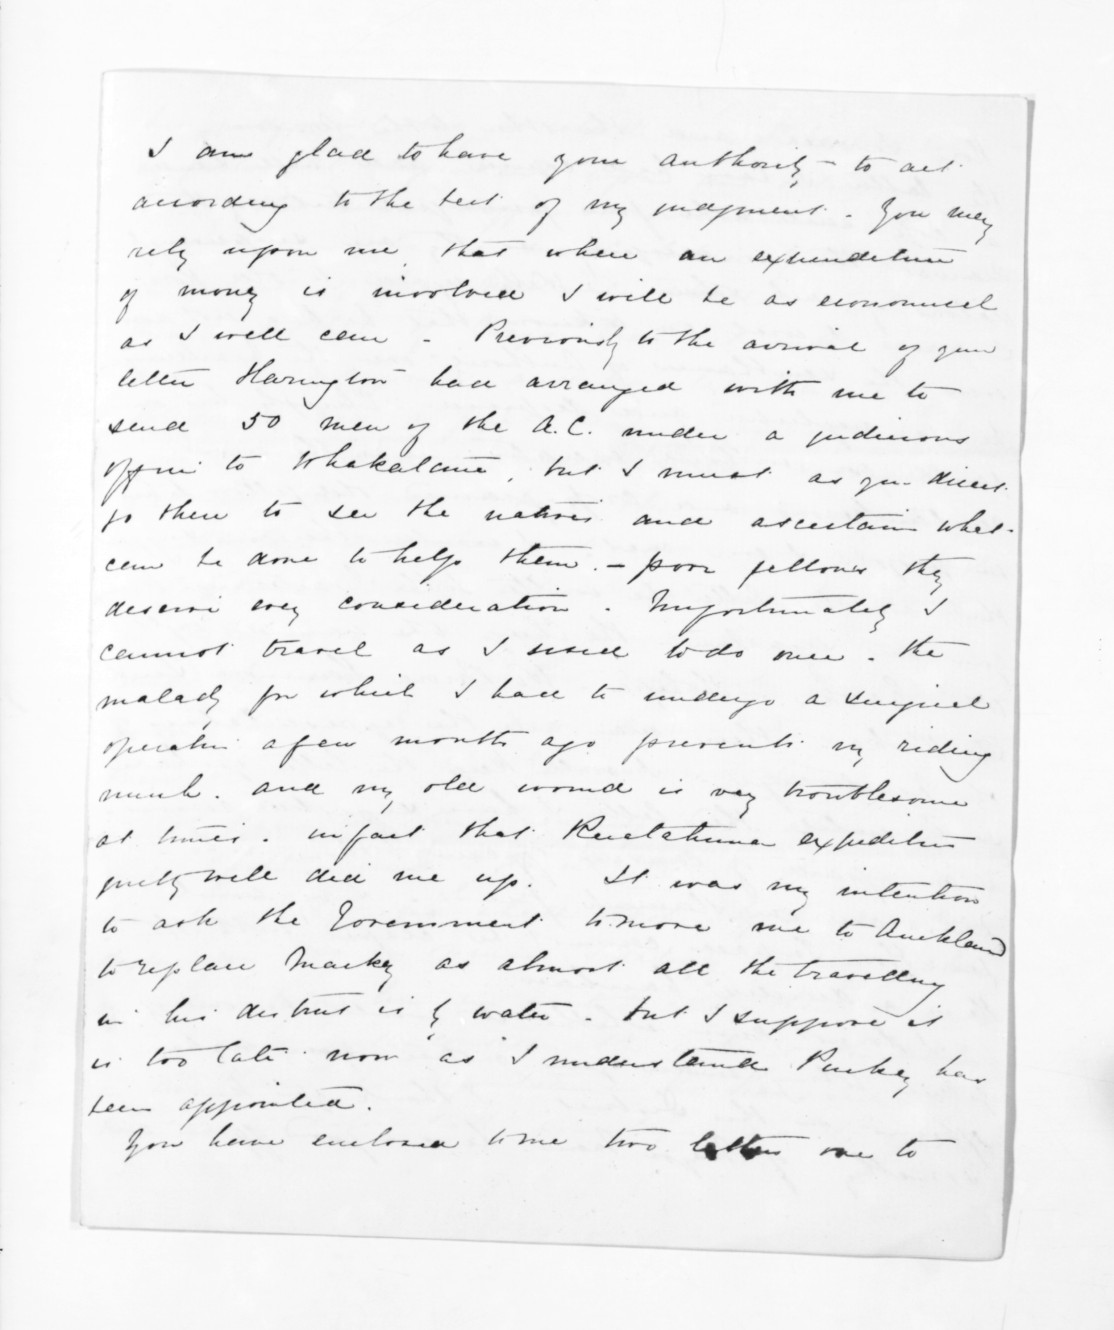 I am glad to have your authority to act
according to the best of my judgment. You may
rely upon me, that where an expenditure
of money is involved I will be as economical
as I well can. Previously to the arrival of your
letter Harington had arranged with me to
send 50 men of the A.C. under a judicious
officer to Whakatane, but I must as you direct
go there to see the natives and ascertain what
can be done to help them. – poor fellows they
deserve every consideration. Unfortunately I
cannot travel as I used to do once. the
malady for which I had to undergo a surgical
operation a few months ago prevents my riding
much. and my old wound is very troublesome
at times. in fact that Ruatahuna expedition
pretty well did me up. It was my intention
to ask the Government to move me to Auckland
to replace Mackay as almost all the travelling
in his district is by water. but I suppose it
is too late now as I understand Puckey has
been appointed.
You have enclosed to me two letters one to